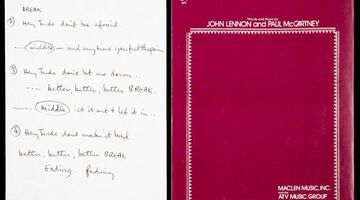 BREAK
② Hey Jude don't be afraid.
middle — and any time you feel the pain
③ Hey Jude don't let me down.
.... better, better, better BREAK.
---- middle let it out + let it in...
④ Hey Jude dont make it bad
better, better, better BREAK
Ending. fading
Words and Music by
JOHN LENNON and PAUL McCARTNEY
MACLEN MUSIC, INC.
ATV MUSIC GROUP